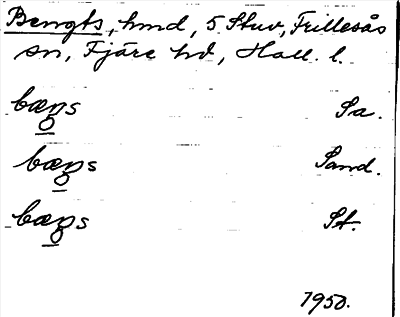 Bengts, hmd, 5 Stuv, Frillesås
sn, Fjäre hd, Hall. l.
bæŋs Sa.
bæŋs Sand.
bæŋs St.
1950.